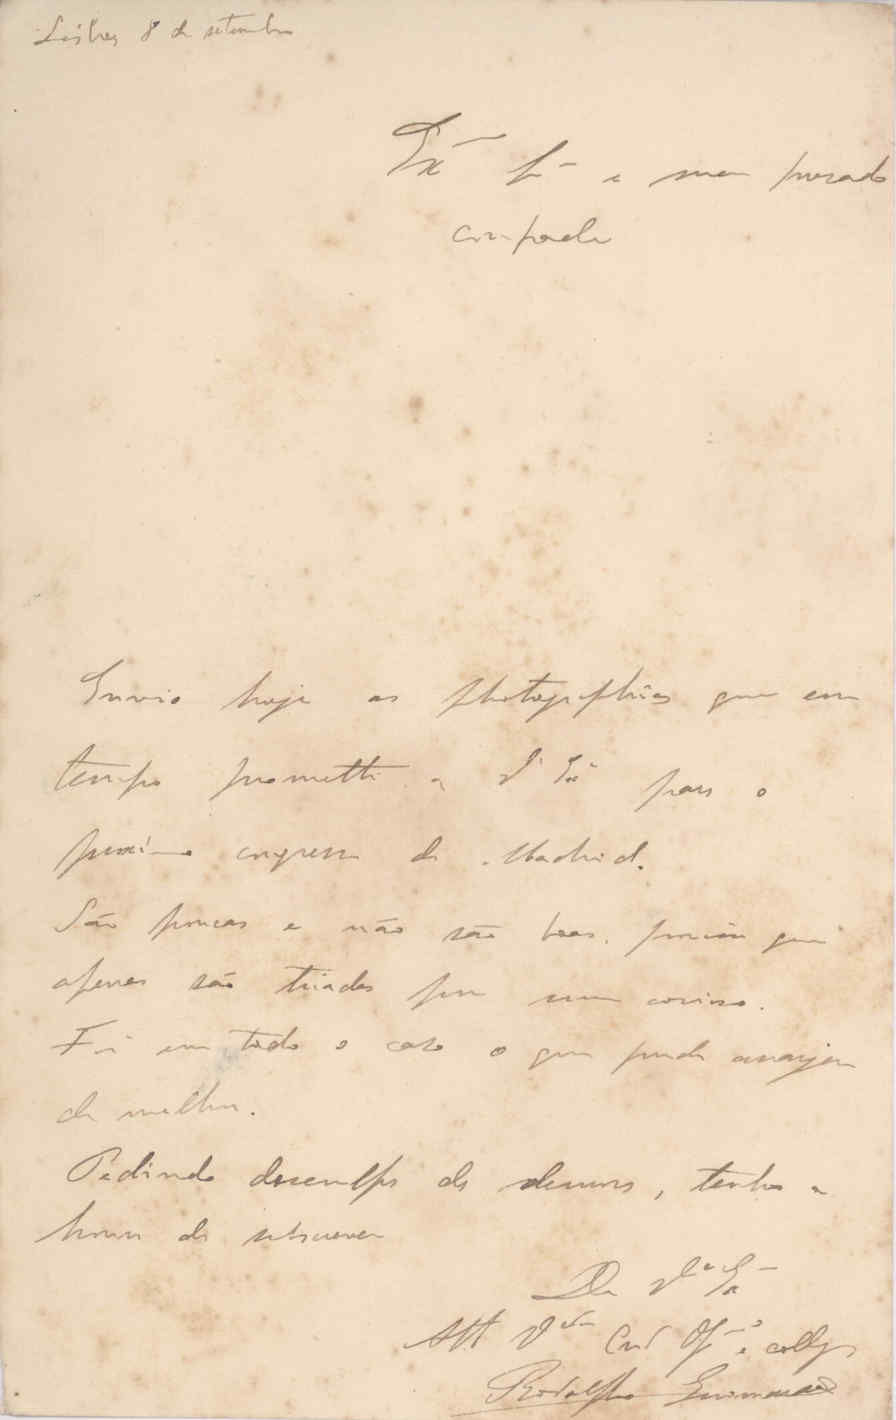 Lisboa 8 de setembro
Exmo Sr e meu presado
compadre
Envio hoje as photographias que em
tempo prometti a Va Exa para o
proximo congresso de Madrid.
São poucas e não são boas, porém que
apenas são tiradas por um curioso.
Foi em todo o caso o que pude arranjar
de melhor.
Pedindo desculpa da demora, tenho a
honra de subscrever
De Va Exa
Att Vdor Cro Obgo e collega
Rodolpho Guimarães